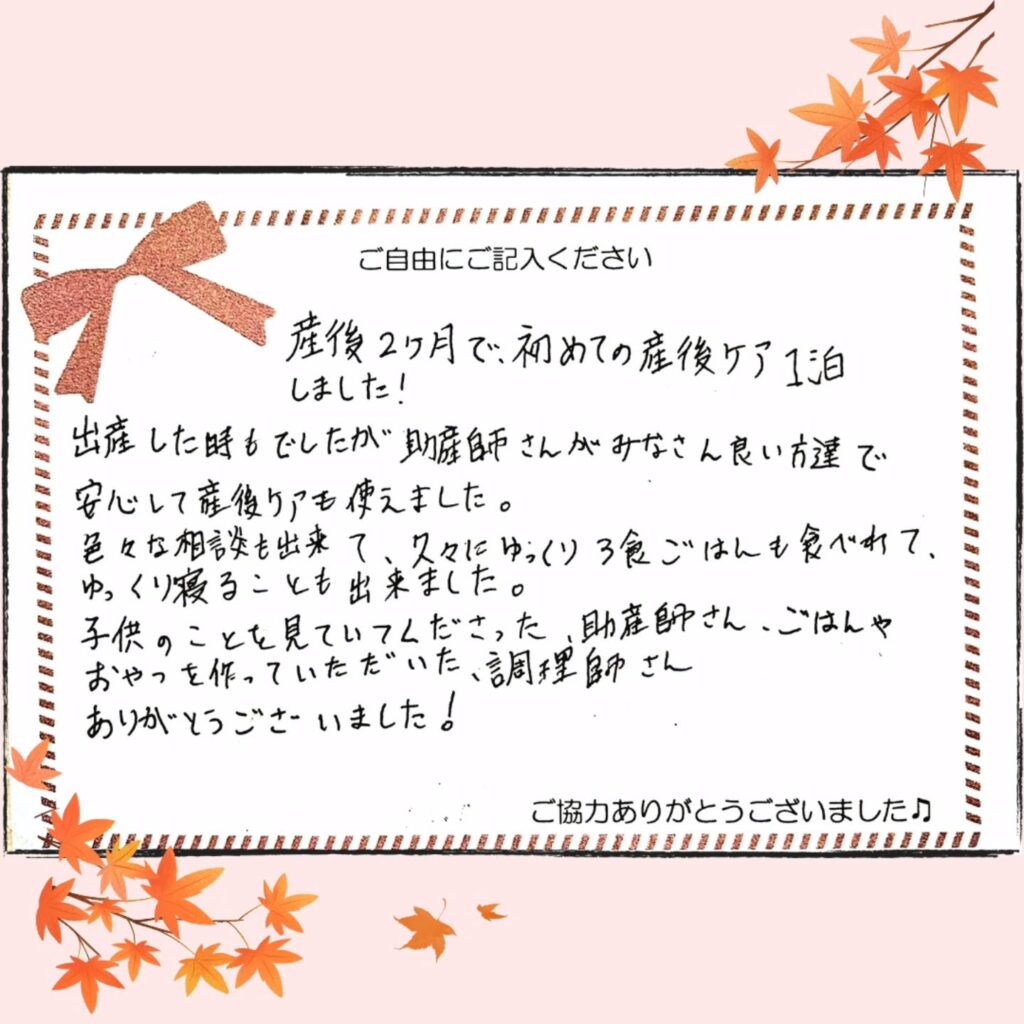 ご自由にご記入ください
産後2ヶ月で、初めての産後ケア1泊
しました！
出産した時もでしたが助産師さんがみなさん良い方達で
安心して産後ケアも使えました。
色々な相談も出来て、久々にゆっくり3食ごはんも食べれて、
ゆっくり寝ることも出来ました。
子供のことを見ていてくださった、助産師さん、ごはんや
おやつを作っていただいた、調理師さん
ありがとうございました！
ご協力ありがとうございました♫